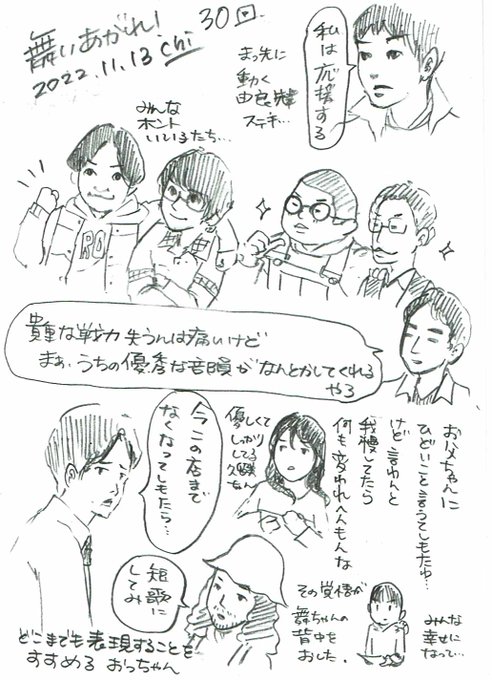 舞いあがれ! 30回.
2022.11.13 chi
私は応援する
まっ先に
動く
由良先輩
ステキ…
みんな
ホント
いい子たち…
RO
貴重な戦力失うんは痛いけど
まぁ、うちの優秀な音頭がなんとかしてくれる
やろ
おハメちゃんに
ひどいこと言うてしもたゆ…
けど 言わんと
我慢してたら
何も変われへんもんな
優しくて
しっかり
してる
久留美
ちゃん
今この店まで
なくなってしもたら…
短歌に
してみ
その覚悟が
舞ちゃんの
背中を
おした.
みんな
幸せに
なって…
どこまでも表現することを
すすめる おっちゃん